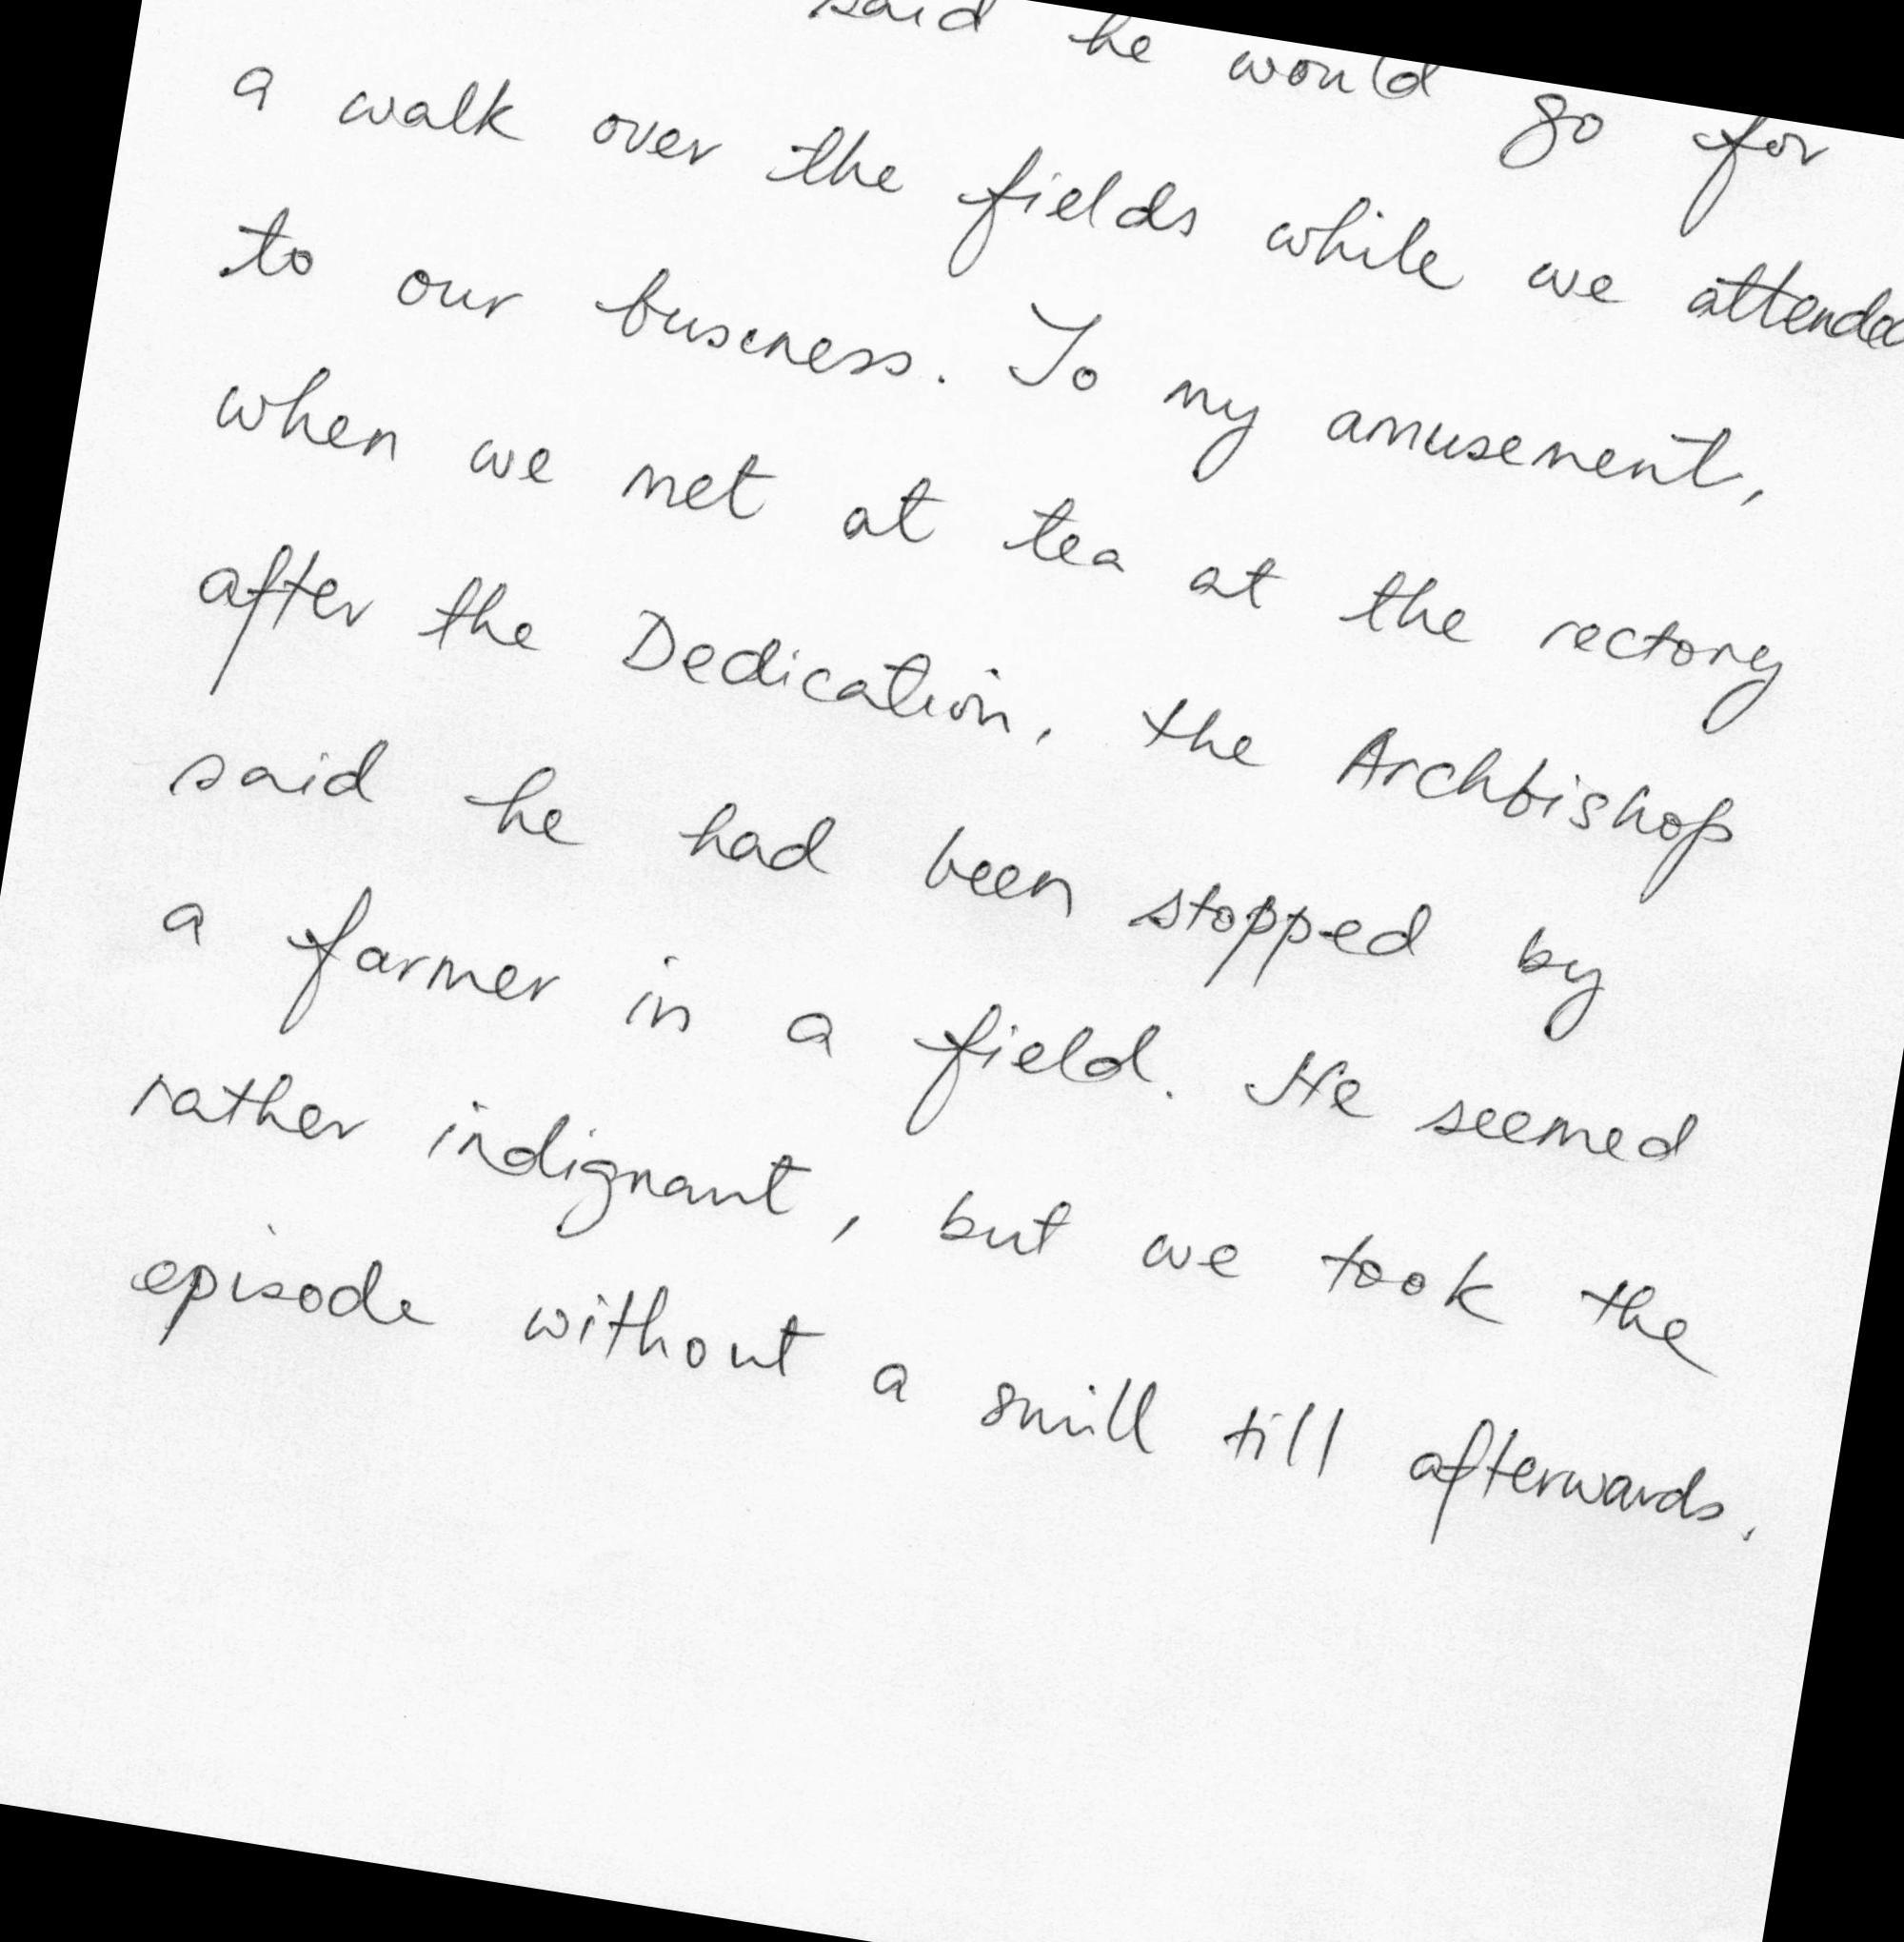 said he would go for
a walk over the fields while we attended
to our business. To my amusement,
when we met at tea at the rectory
after the Dedication, the Archbishop
said he had been stopped by
a farmer in a field. He seemed
rather indignant, but we took the
episode without a smill till afterwards.